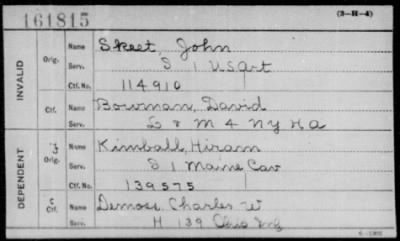 161815
(3-H-4)
INVALID
Orig. Name Skeet, John
Serv. I 1 U.S. Art
Ctf. No. 114910
Ctf. Name Bowman, David
Serv. L & M 4 N Y H A
DEPENDENT
3 Orig. Name Kimball, Hiram
Serv. I 1 Maine Cav
Ctf. No. 139575
C Ctf. Name Demoss, Charles W
Serv. H 139 Ohio Inf